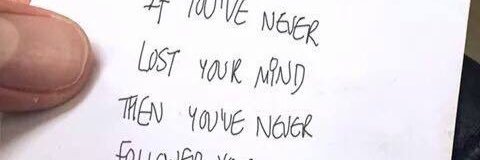 IF YOU'VE NEVER
LOST YOUR MIND
THEN YOU'VE NEVER
FOLLOWED